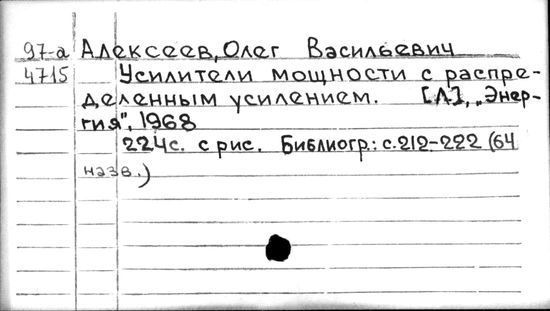 97-а Алексеев, Олег Васильевич
4715 Усилители мощности с распре-
деленным усилением. [Л], „Энер-
гия", 1968
224с. с рис. Библиогр.: с. 212-222 (64
назв.)